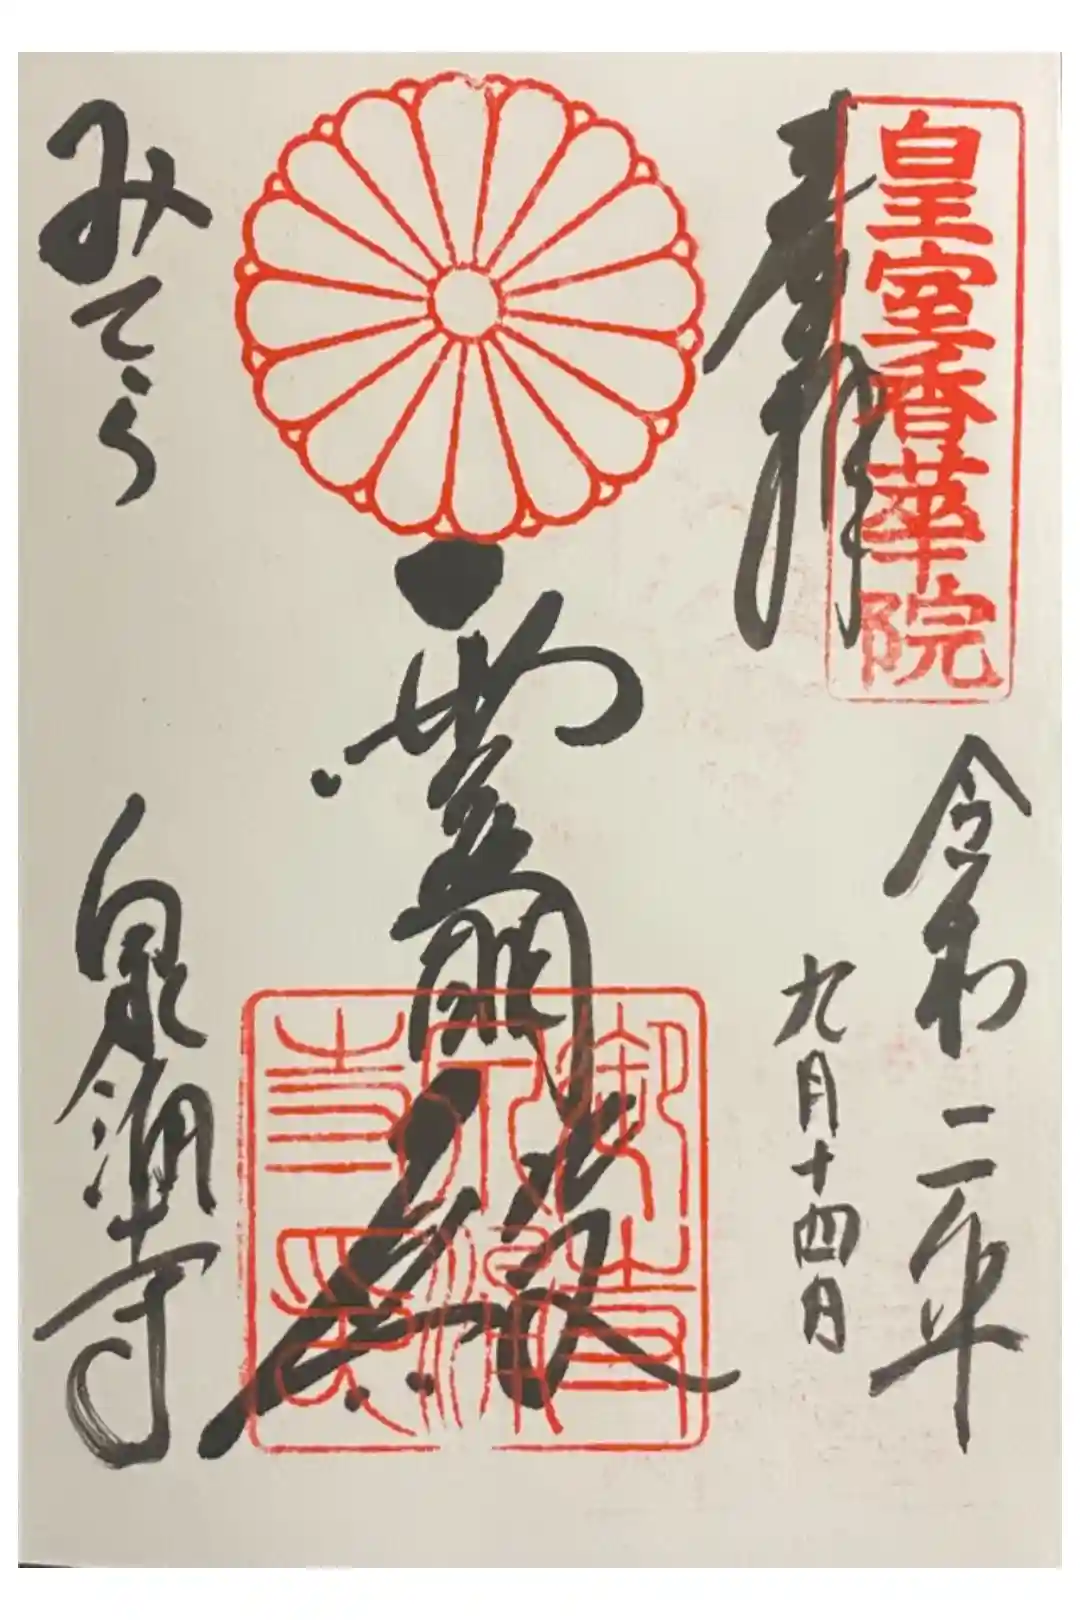 皇室香華院
奉拝
令和二年
九月十四日
靈明殿
御寺
泉涌
寺印
みてら
泉涌寺